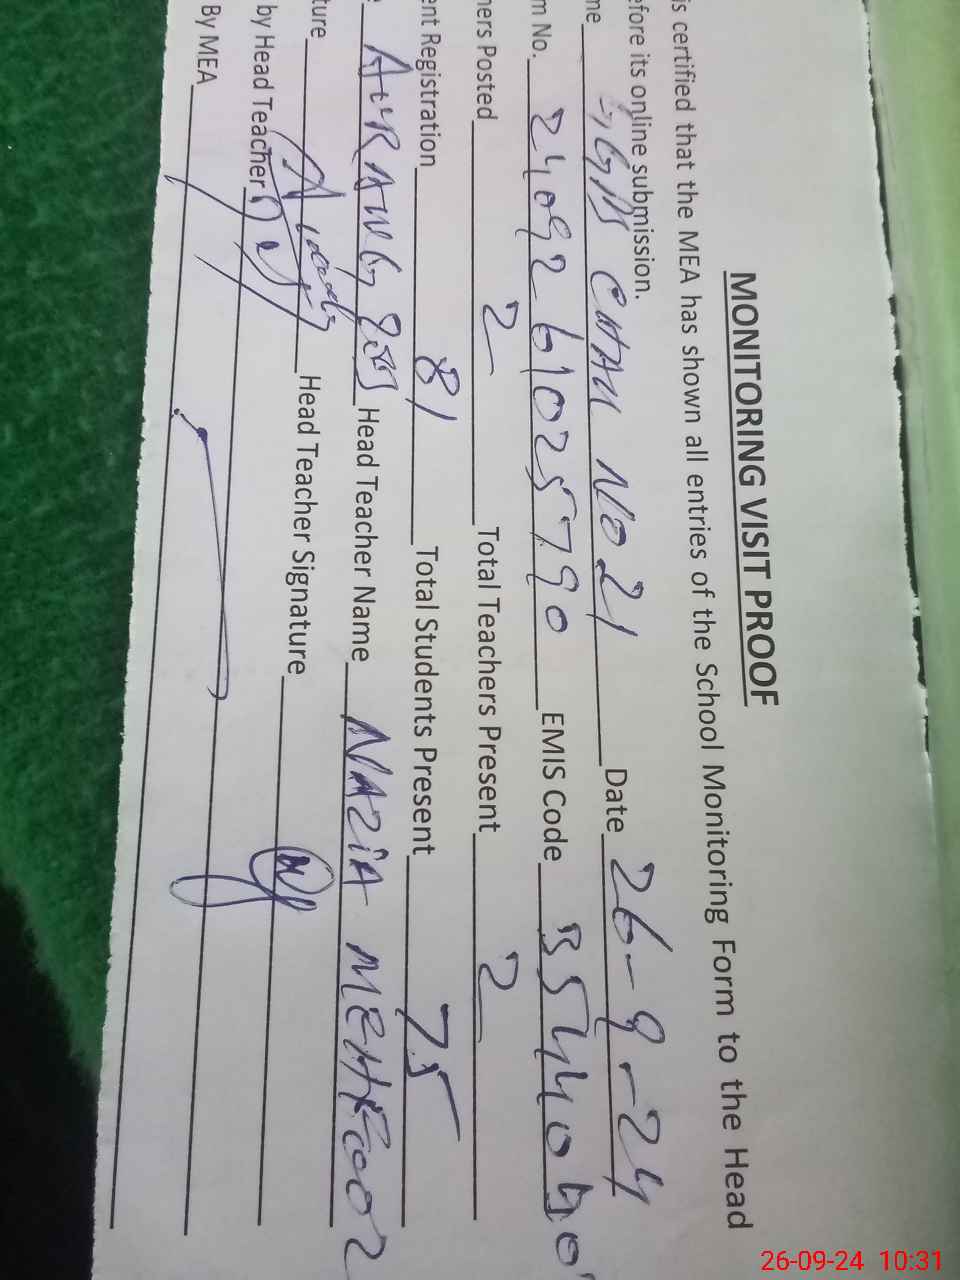 MONITORING VISIT PROOF
is certified that the MEA has shown all entries of the School Monitoring Form to the Head
efore its online submission.
me CHAK NO 21 Date 26-9-24
m No. 2409261025790 EMIS Code
hers Posted 2 Total Teachers Present 2
ent Registration 81 Total Students Present 75
Head Teacher Name NAZIA
ture Head Teacher Signature
by Head Teacher
By MEA
26-09-24 10:31